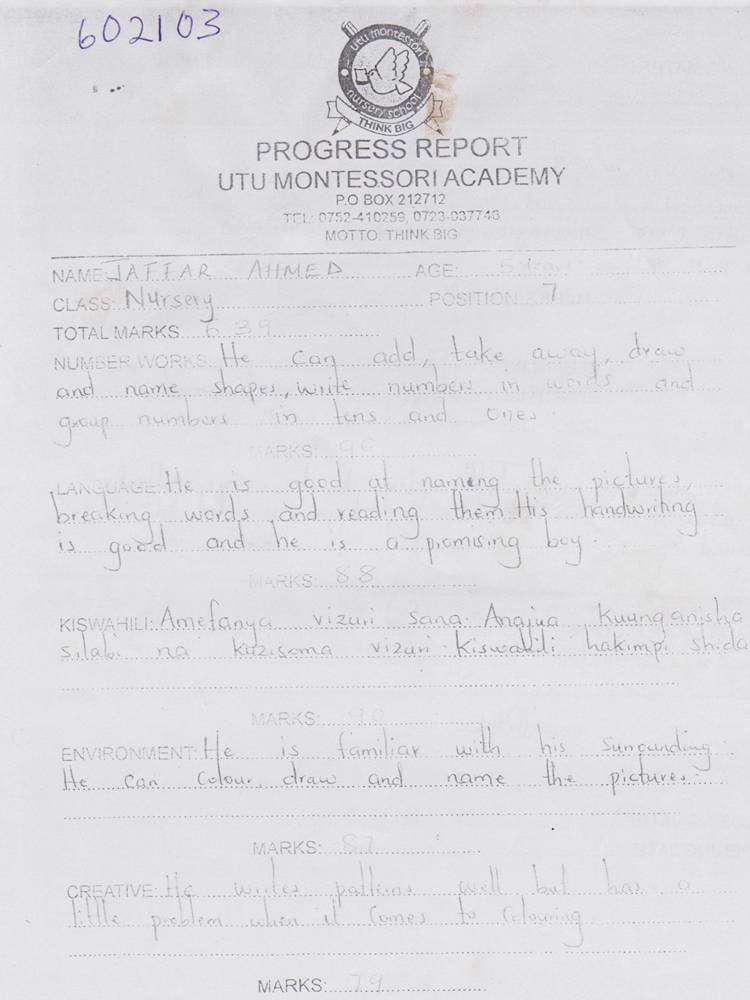 602103
utu montessori
nursery school
THINK BIG
PROGRESS REPORT
UTU MONTESSORI ACADEMY
P.O BOX 212712
TEL: 0752-410259, 0723-037746
MOTTO: THINK BIG
NAME: JAFFAR AHMED AGE: 5 Years
CLASS: Nursery POSITION: 7
TOTAL MARKS 639
NUMBER WORKS: He can add, take away, draw
and name shapes, write numbers in words and
group numbers in tens and ones.
MARKS:
LANGUAGE: He is good at nameng the pictures,
breaking words and reading them. His handwriting
is good and he is a promising boy.
MARKS: 88
KISWAHILI: Amefanya vizuri sana. Anajua kuunganisha
silabi na kuzisoma vizuri. Kiswahili hakimpi shida
MARKS: 90
ENVIRONMENT: He is familiar with his surrounding
He can colour, draw and name the pictures.
MARKS: 87
CREATIVE: He writes patterns well but has a
little problem when it comes to colouring
MARKS: 79